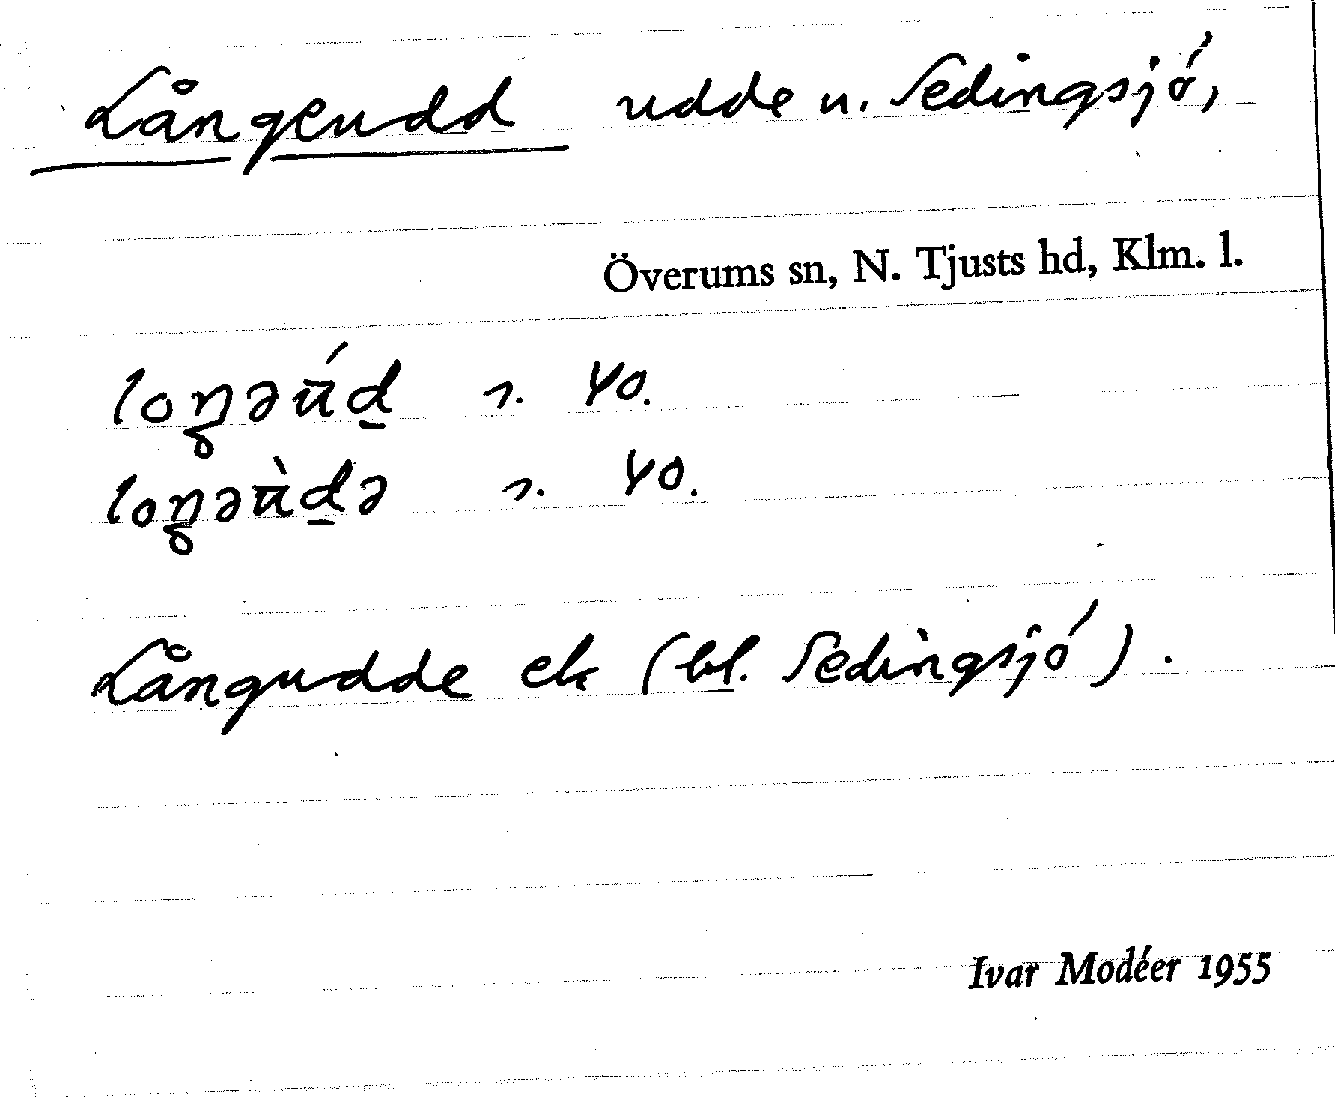 Långeudd udde n. Sedingsjö,
Överums sn, N. Tjusts hd, Klm. l.
loŋəúd̲ 40.
loŋəùd̲ə 40.
Långudde ek (bl. Sedingsjö).
Ivar Modéer 1955